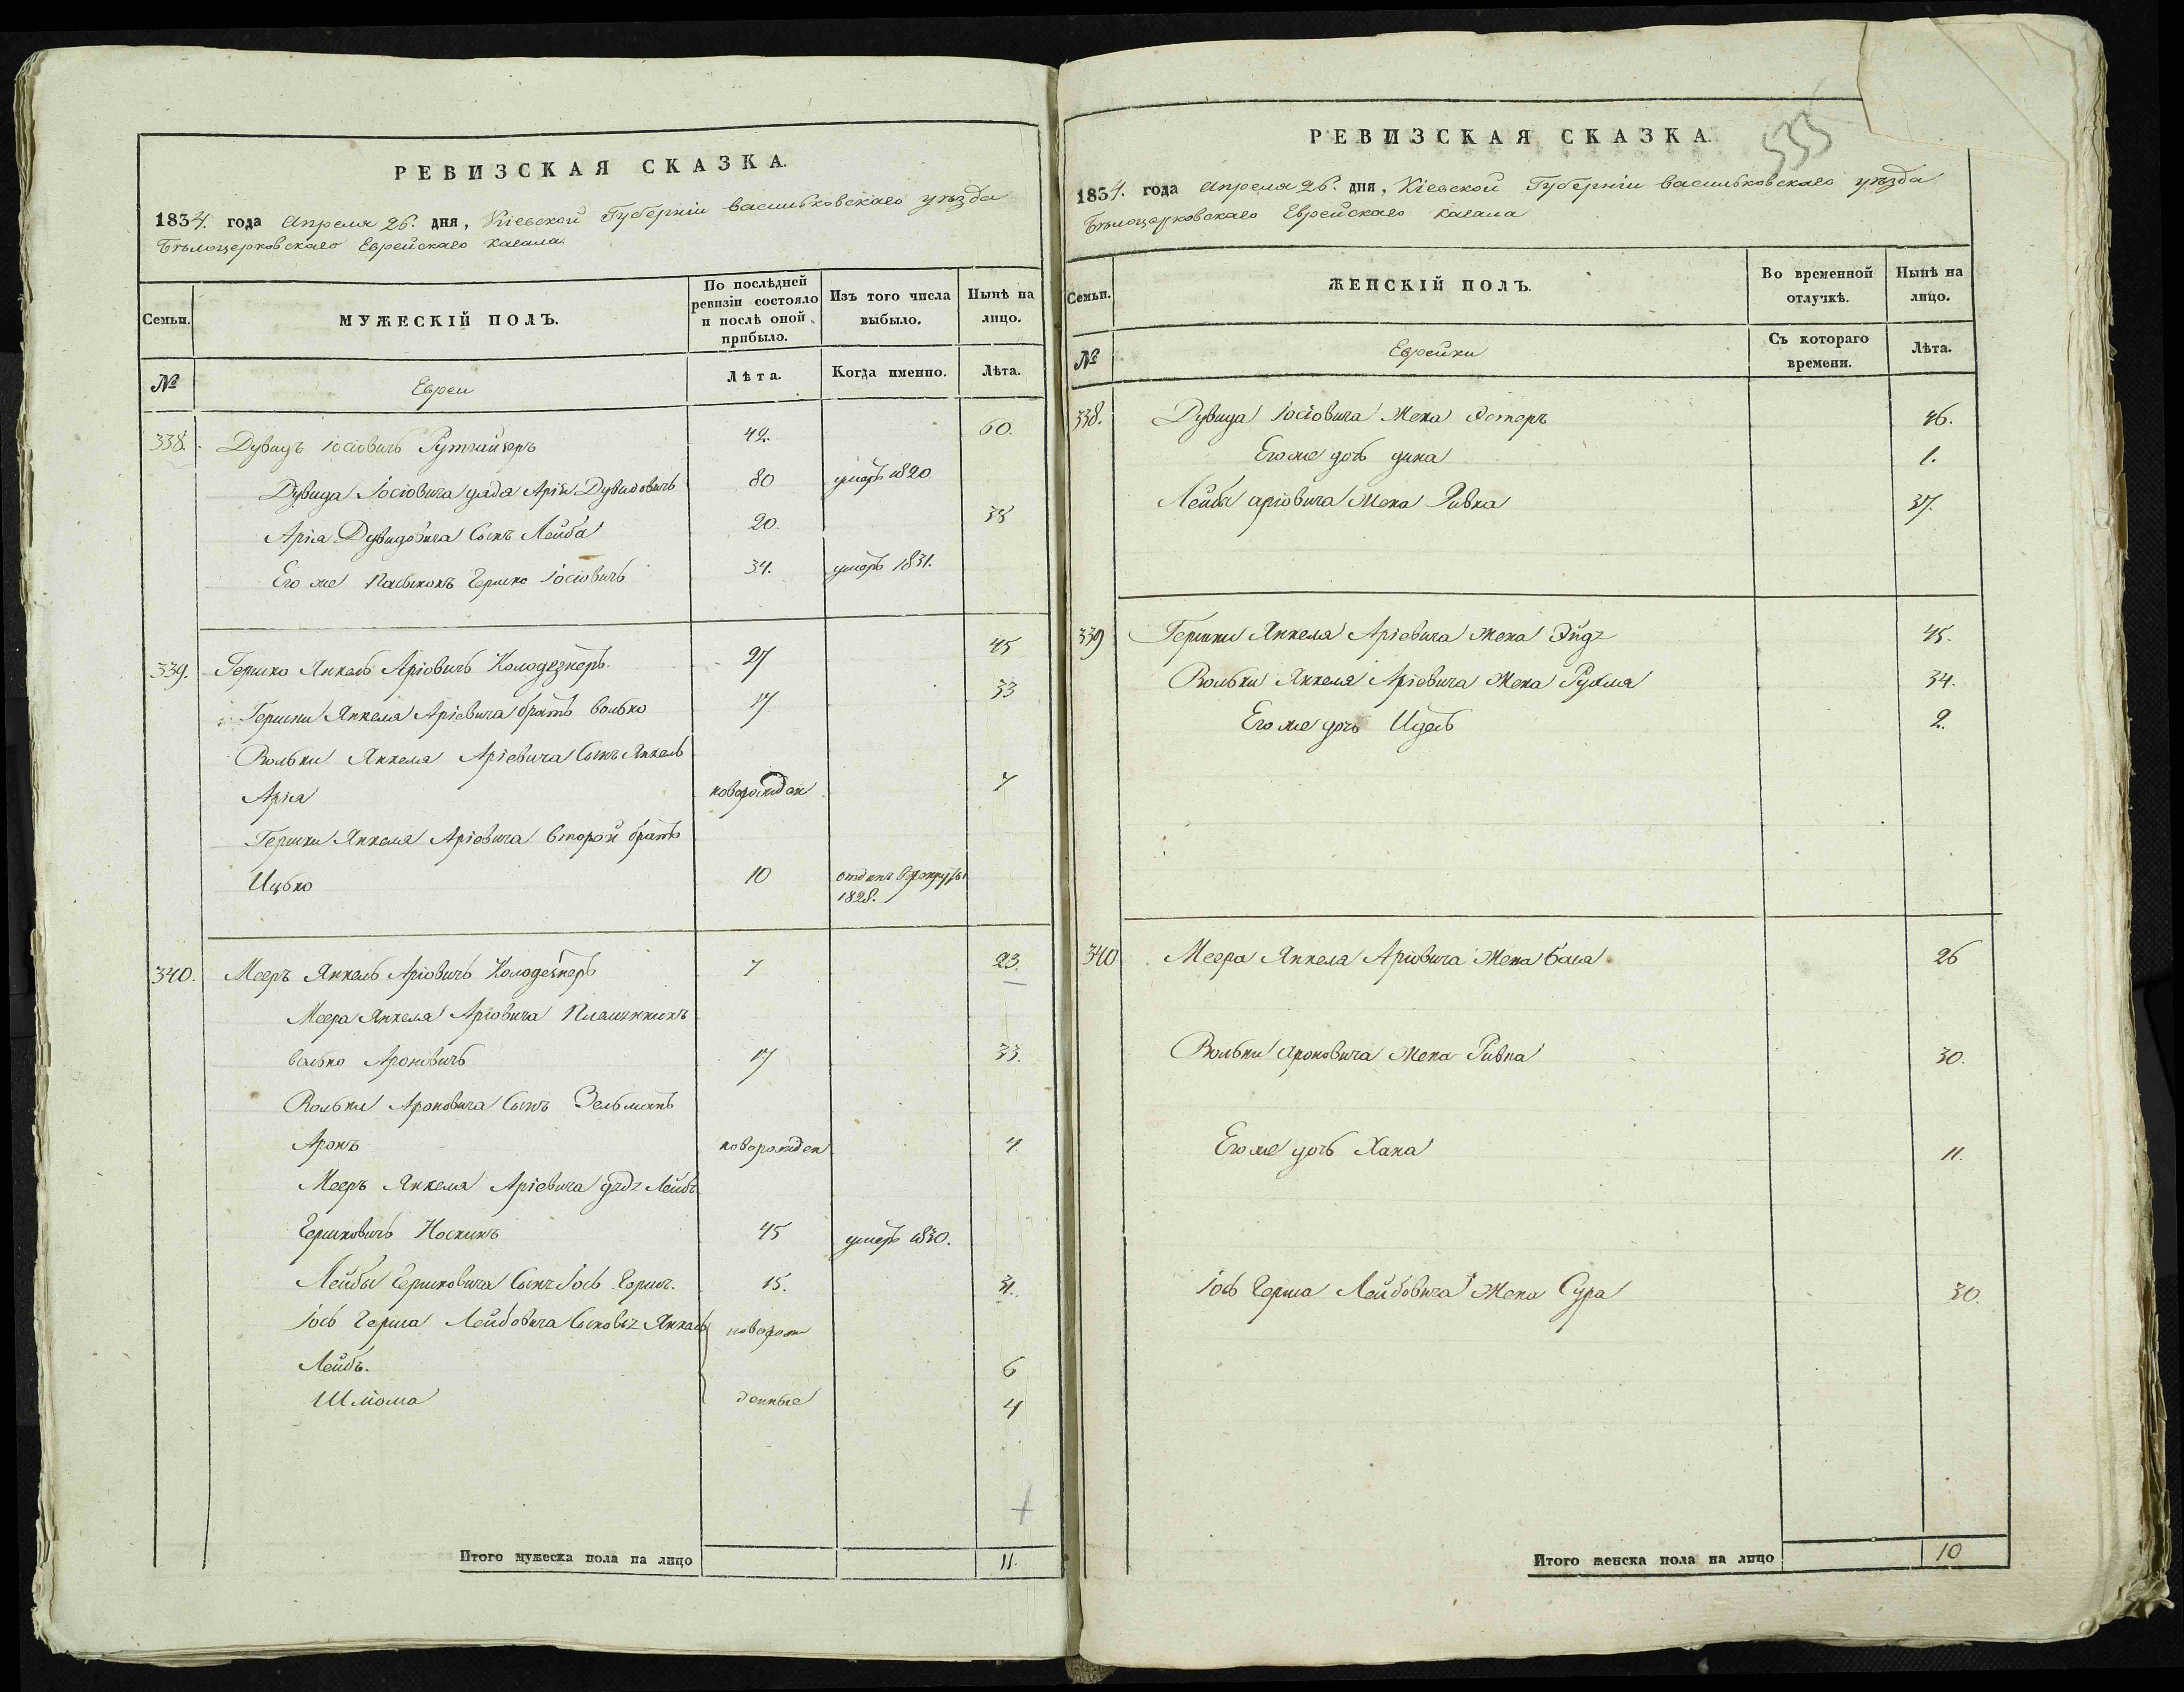 РЕВИЗСКАЯ СКАЗКА.
1834. года Апреля 26. дня, Кіевской Губерніи васильковскаго уѣзда
Бѣлоцерковскаго Еврейскаго кагала.
Семьи.
МУЖЕСКІЙ ПОЛЪ.
По послѣдней ревизіи состояло и послѣ оной прибыло.
Изъ того числа выбыло.
Нынѣ на лицо.
№
Евреи
Лѣта.
Когда именно.
Лѣта.
338. Дувидъ Іосіовичъ 42. 60.
Дувида Іосіовича дядя Арія Дувидовичъ 80 умеръ 1820
Арія Дувидовича Сынъ Лейба 20. 38
Его же Пасынокъ Гершко Іосіовичъ 34. умеръ 1831.
339. Гершко Янкель Аріовичъ Колодезнеръ. 27 45
Гершки Янкеля Аріевича братъ волько 17 33
Вольки Янкеля Аріевича Сынъ Янкель
Арія новорожден 7
Гершки Янкеля Аріевича второй братъ
Ицько 10 отданъ в рекруты
1828.
340. Мееръ Янкель Аріовичъ Колодезнеръ 7 23.
Меера Янкеля Аріовича Племянникъ
волько Ароновичъ 17 33.
Вольки Ароновича Сынъ Зельманъ
Аронъ новорожден 4
Мееръ Янкеля Аріевича дядя Лейбъ
Гершковичъ Носкинъ 45 умеръ 1830.
Лейбы Гершковича Сынъ Іось Гершъ. 15. 31.
Іось Герша Лейбовича Сыновя Янкель новорож
Лейбъ. 6
Шліома денные 4
Итого мужеска пола на лицо 11.
РЕВИЗСКАЯ СКАЗКА.
533
1834. года Апреля 26. дня, Кіевской Губерніи васильковскаго уѣзда
Бѣлоцерковскаго Еврейскаго кагала
Семьи.
ЖЕНСКІЙ ПОЛЪ.
Во временной отлучкѣ.
Нынѣ на лицо.
№
Еврейки
Съ котораго времени.
Лѣта.
338. Дувида Іосіовича Жена Эстеръ 46.
Его же дочь дина 1.
Лейбы аріовича Жена Ривка 37.
339 Гершки Янкеля Аріевича Жена 45.
Вольки Янкеля Аріевича Жена Рухля 34.
Его же дочь Идель 2.
340 Меера Янкеля Аріовича Жена Бася 26
Вольки Ароновича Жена Ривка 30.
Его же дочь Хана 11.
Іось Герша Лейбовича Жена Сура 30.
Итого женска пола на лицо 10